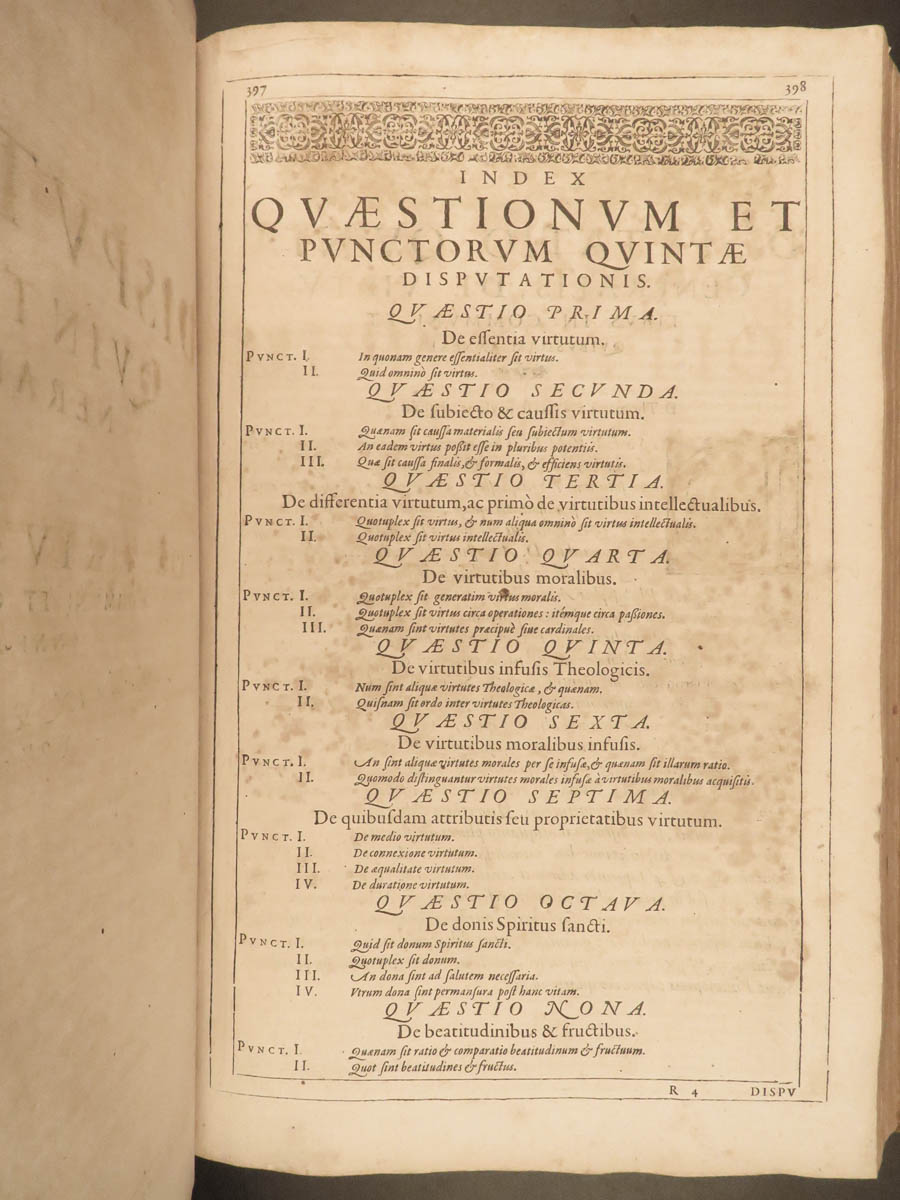 397 398
INDEX
QVÆSTIONVM ET
PVNCTORVM QVINTÆ
DISPVTATIONIS.
QVÆSTIO PRIMA.
De eſſentia virtutum.
PVNCT. I. In quonam genere eſſentialiter ſit virtus.
II. Quid omninò ſit virtus.
QVÆSTIO SECVNDA.
De ſubiecto & cauſſis virtutum.
PVNCT. I. Quænam ſit cauſſa materialis ſeu ſubiectum virtutum.
II. An eadem virtus poßit eſſe in pluribus potentiis.
III. Quæ ſit cauſſa finalis, & formalis, & efficiens virtutis.
QVÆSTIO TERTIA.
De differentia virtutum, ac primò de virtutibus intellectualibus.
PVNCT. I. Quotuplex ſit virtus, & num aliqua omninò ſit virtus intellectualis.
II. Quotuplex ſit virtus intellectualis.
QVÆSTIO QVARTA.
De virtutibus moralibus.
PVNCT. I. Quotuplex ſit generatim virtus moralis.
II. Quotuplex ſit virtus circa operationes: itémque circa paßiones.
III. Quænam ſint virtutes præcipuè ſiue cardinales.
QVÆSTIO QVINTA.
De virtutibus infuſis Theologicis.
PVNCT. I. Num ſint aliquæ virtutes Theologicæ, & quænam.
II. Quiſnam ſit ordo inter virtutes Theologicas.
QVÆSTIO SEXTA.
De virtutibus moralibus infuſis.
PVNCT. I. An ſint aliquæ virtutes morales per ſe infuſæ, & quænam ſit illarum ratio.
II. Quomodo diſtinguantur virtutes morales infuſæ à virtutibus moralibus acquiſitis.
QVÆSTIO SEPTIMA.
De quibuſdam attributis ſeu proprietatibus virtutum.
PVNCT. I. De medio virtutum.
II. De connexione virtutum.
III. De æqualitate virtutum.
IV. De duratione virtutum.
QVÆSTIO OCTAVA.
De donis Spiritus ſancti.
PVNCT. I. Quid ſit donum Spiritus ſancti.
II. Quotuplex ſit donum.
III. An dona ſint ad ſalutem neceſſaria.
IV. Vtrum dona ſint permanſura poſt hanc vitam.
QVÆSTIO NONA.
De beatitudinibus & fructibus.
PVNCT. I. Quænam ſit ratio & comparatio beatitudinum & fructuum.
II. Quot ſint beatitudines & fructus.
R 4 DISPV